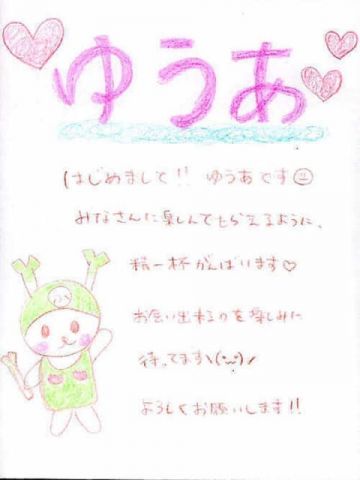 ゆうあ
はじめまして!! ゆうあです
みなさんに楽しんでもらえるように、
精一杯がんばります♡
お会い出来るのを楽しみに
待ってます\(^-^)/
よろしくお願いします!!